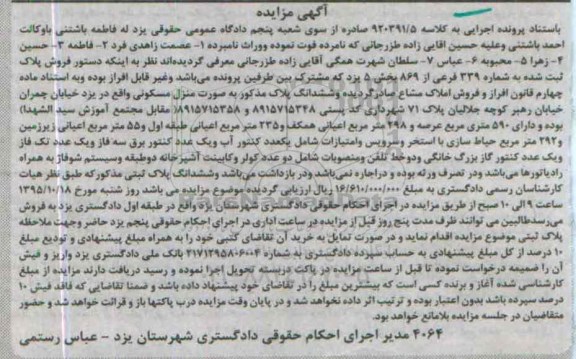 آگهی مزایده
باستناد پرونده اجرایی به کلاسه ۹۲۰۳۹۱/۵ صادره از سوی شعبه پنجم دادگاه عمومی حقوقی یزد له فاطمه باشتنی باوکالت
احمد باشتنی وعلیه حسین اقایی زاده طزرجانی که نامبرده فوت نموده ووراث نامبرده ۱- عصمت زاهدی فرد ۲- فاطمه ۳- حسین
۴- زهرا ۵- محبوبه ۶- عباس ۷- سلطان شهرت همگی آقایی زاده طزرجانی معرفی گردیده‌اند نظر به اینکه دستور فروش پلاک
ثبت شده به شماره ۳۳۹ فرعی از ۸۶۹ بخش ۵ یزد که مشترک بین طرفین پرونده می‌باشد وغیر قابل افراز بوده وبه استناد ماده
چهارم قانون افراز و فروش املاک مشاع صادر گردیده وششدانگ پلاک مذکور به صورت منزل مسکونی واقع در یزد خیابان چمران
خیابان رهبر کوچه جلالیان پلاک ۷۱ شهرداری کد پستی ۸۹۱۵۷۱۵۳۴۸ و ۸۹۱۵۷۱۵۳۵۸ (مقابل مجتمع آموزش سید الشهدا)
بوده و دارای ۵۹۰ متری مربع عرصه و ۲۹۸ متر مربع اعیانی همکف و۲۳۵ متر مربع اعیانی طبقه اول و۵۵ متر مربع اعیانی زیرزمین
و۲۹۲ متر مربع حیاط سازی با استخر و سرویس وامتیازات شامل یکعدد کنتور آب ویک عدد کنتور برق سه فاز ویک عدد تک فاز
ویک عدد کنتور گاز بزرگ خانگی ودوخط تلفن ومنصوبات شامل دو عدد کولر وکابینت آشپزخانه دوطبقه وسیستم شوفاژ به همراه
رادیاتورها می‌باشد ودر تصرف ورثه بوده و دراجاره نمی‌باشد ودر بازداشت می‌باشد وششدانگ پلاک ثبتی مذکورکه طبق نظر هیات
کارشناسان رسمی دادگستری به مبلغ ۱۶/۶۱۰/۰۰۰/۰۰۰ ریال ارزیابی گردیده موضوع مزایده می باشد روز شنبه مورخ ۱۳۹۵/۱۰/۱۸
ساعت ۹ الی ۱۰ صبح از طریق مزایده در اجرای احکام حقوقی دادگستری شهرستان یزد واقع در طبقه اول دادگستری یزد به فروش
می‌رسدطالبین می توانند ظرف مدت پنج روز قبل از مزایده در ساعت اداری در اجرای احکام حقوقی پنجم یزد حاضر وجهت ملاحظه
پلاک ثبتی موضوع مزایده اقدام نماید و در صورت تمایل به خرید آن تقاضای کتبی خود را به همراه مبلغ پیشنهادی و تودیع مبلغ
۱۰ درصد از کل مبلغ پیشنهادی به حساب سپرده دادگستری به شماره ۲۱۷۱۲۹۵۸۰۶۰۰۴ بانک ملی دادگستری یزد واریز و فیش
آن را ضمیمه درخواست نموده تا قبل از ساعت مزایده در پاکت دربسته تحویل اجرا نموده و رسید دریافت دارند مزایده از مبلغ
کارشناسی شده آغاز و برنده کسی است که بیشترین مبلغ را در تقاضای خود پیشنهاد داده باشد و ضمنا تقاضایی که فاقد فیش ۱۰
درصد سپرده باشد بدون اعتبار بوده و ترتیب اثر داده نخواهد شد و در پایان وقت مزایده درب پاکتها باز و قرائت خواهد شد و حضور
متقاضیان در جلسه مزایده بلامانع خواهد بود.
۴۰۶۴ مدیر اجرای احکام حقوقی دادگستری شهرستان یزد - عباس رستمی